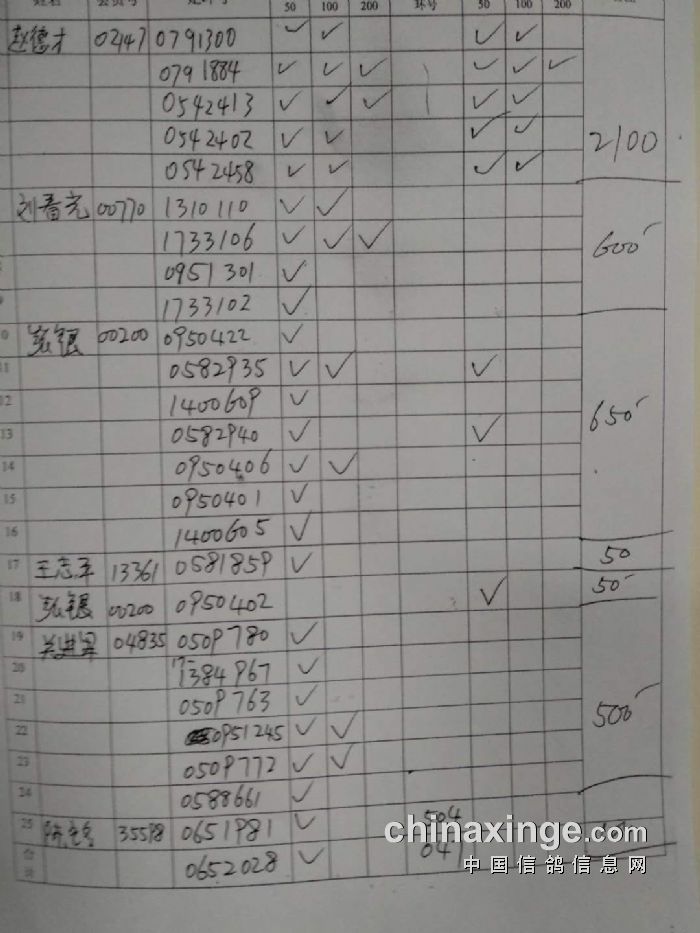 50 100 200 环号 50 100 200
赵德才 02147 0791300 ✓ ✓ ✓ ✓
0791884 ✓ ✓ ✓ ✓ ✓ ✓
0542413 ✓ ✓ ✓ ✓ ✓
0542402 ✓ ✓ ✓ ✓ 2100
0542458 ✓ ✓ ✓ ✓
刘春亮 00770 1310110 ✓ ✓
1733106 ✓ ✓ ✓ 600
0951301 ✓
1733102 ✓
张银 00200 0950422 ✓
11 0582935 ✓ ✓ ✓
12 1400609 ✓
13 0582940 ✓ ✓ 650
14 0950406 ✓ ✓
15 0950401 ✓
16 1400605 ✓
17 王志军 13361 0581859 ✓ 50
18 张银 00200 0950402 ✓ 50
19 04835 0509780 ✓
20 1384967 ✓
21 0509763 ✓
22 0951245 ✓ ✓ 500
23 0509772 ✓ ✓
24 0588661 ✓
25 35518 0651981 ✓ 504
0652028 ✓ 04
chinaxinge.com
中国信鸽信息网